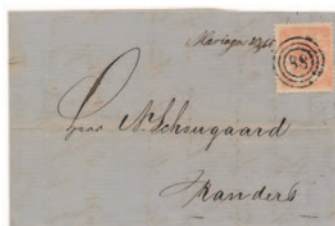 Mariager
88
Herr N. Schougaard
Randers